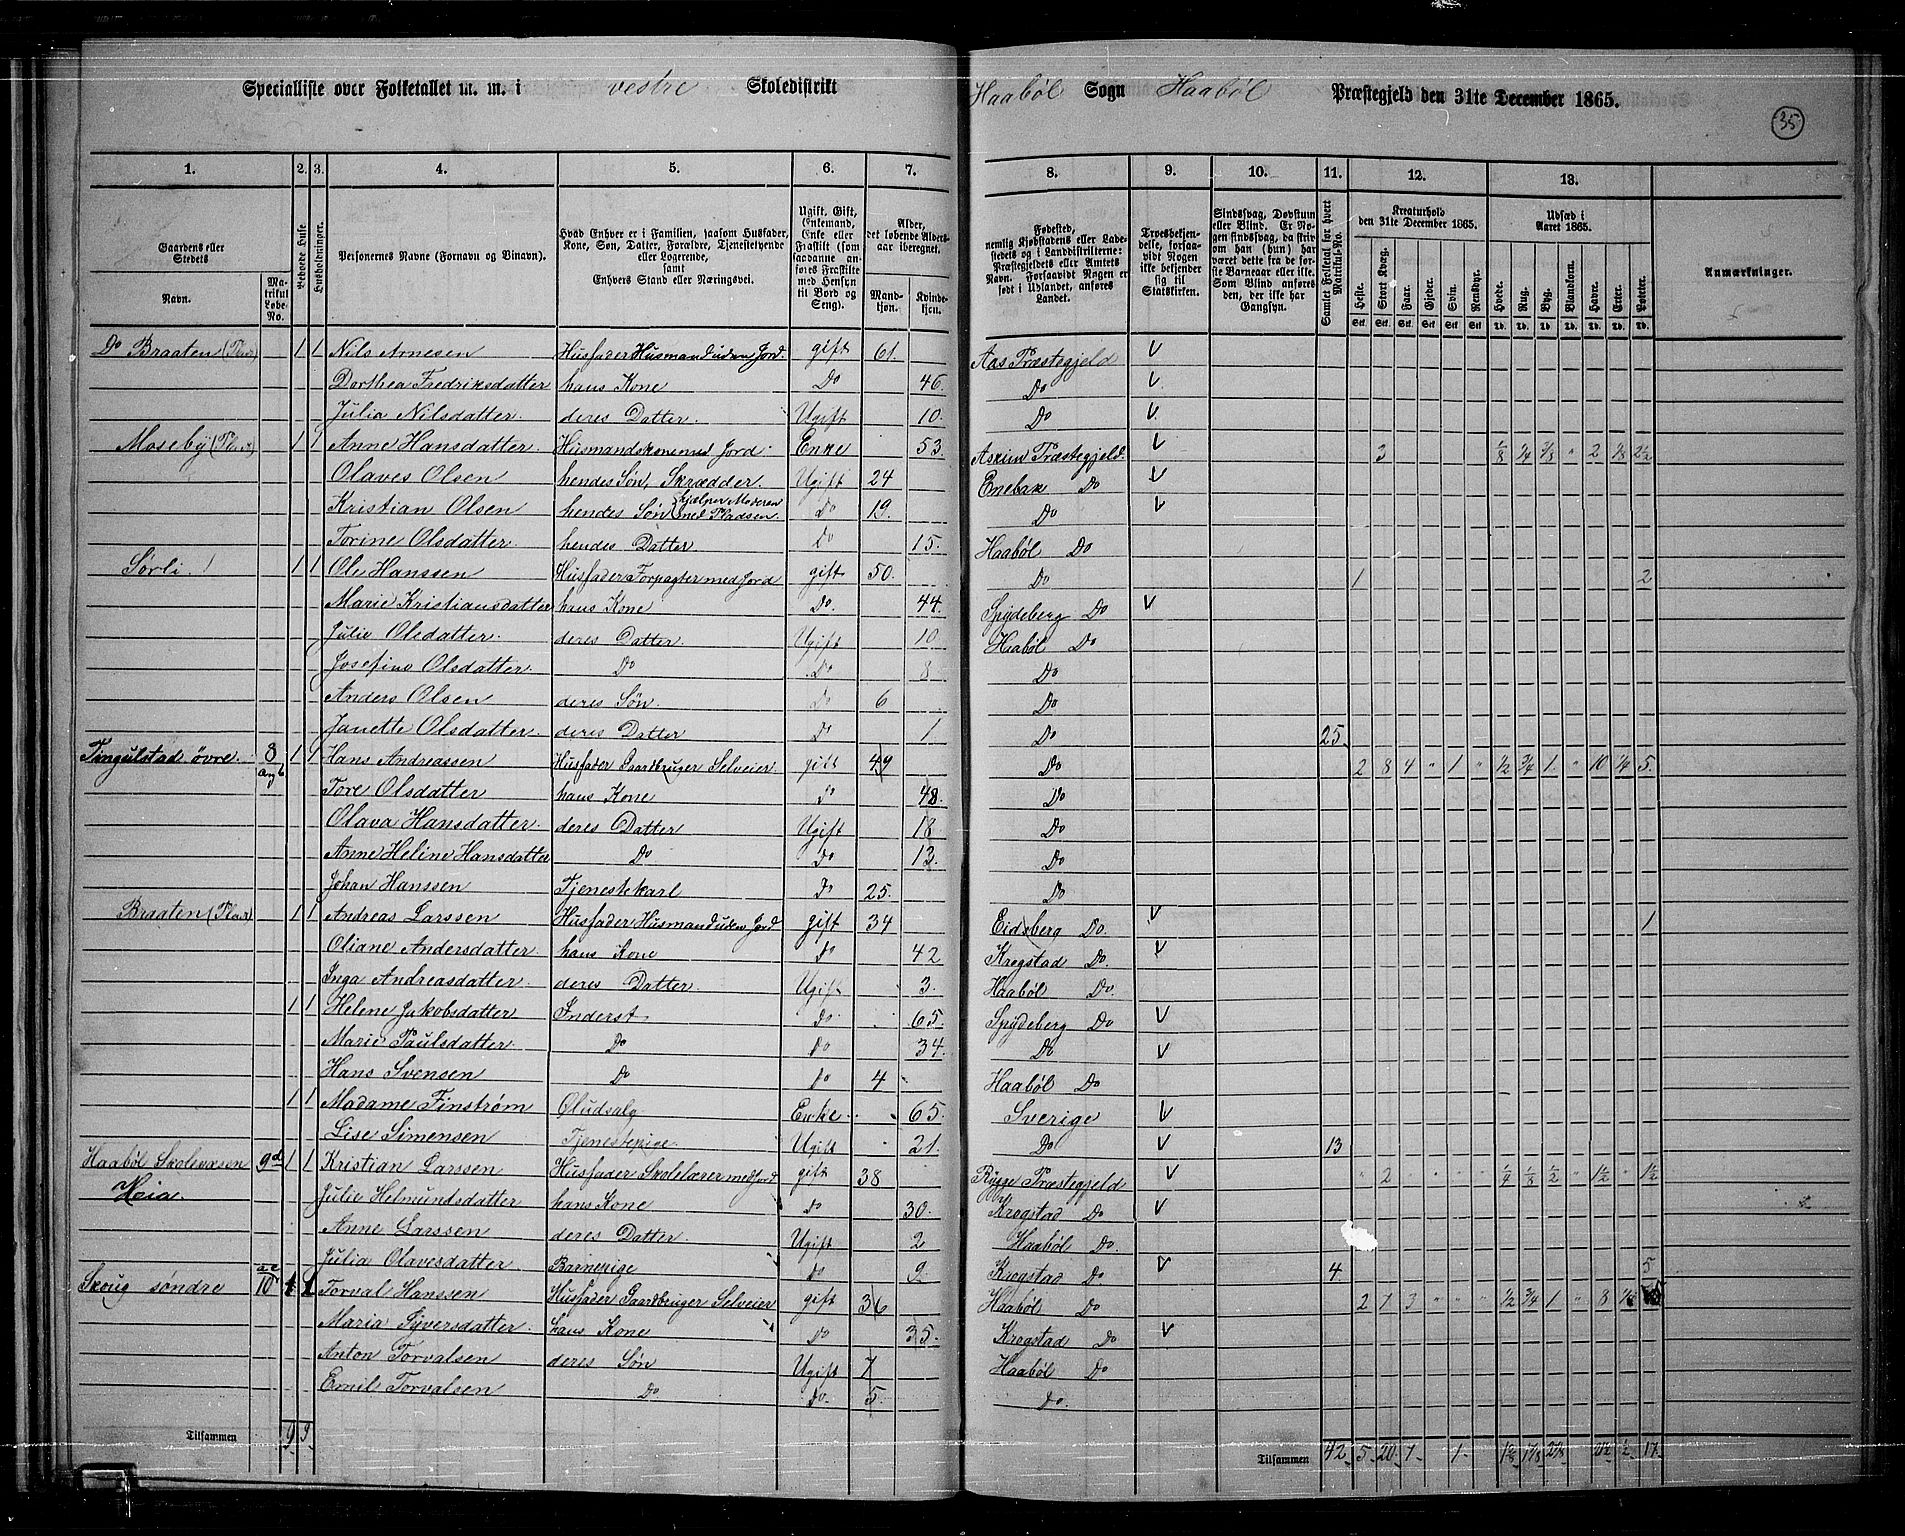 Specialliste over Folketallet m. m. i vestre Skoledistrikt Haabøl Sogn Haabøl Præstegjeld den 31te December 1865.
35
1. 2. 3. 4. 5. 6. 7. 8. 9. 10. 11. 12. 13.
Gaardens eller Stedets
Navn.
Matrikul Løbe-No.
Beboede Huse.
Husholdninger.
Personernes Navne (Fornavn og Binavn).
Hvad Enhver er i Familien, saasom Husfader, Kone, Søn, Datter, Forældre, Tjenestetyende eller Logerende, samt Enhvers Stand eller Næringsvei.
Ugift, Gift, Enkemand, Enke eller Fraskilt (som saadanne anføres Fraskilte med Hensyn til Bord og Seng).
Alder, det løbende Aldersaar iberegnet.
Mandkjøn.
Kvindekjøn.
Fødested, nemlig Kjøbstadens eller Ladestedets og i Landdistrikterne: Præstegjeldets eller Amtets Navn. Forsaavidt Nogen er født i Udlandet, anføres Landet.
Troesbekjendelse, forsaavidt Nogen ikke bekjender sig til Statskirken.
Sindssvag, Døvstum eller Blind. Er Nogen sindssvag, da skrives om han (hun) har været dette fra de første Barneaar eller ikke. Som Blind anføres den, der ikke har Gangsyn.
Samlet Folketal for hvert Matrikul-No.
Kreaturhold den 31te December 1865.
Heste. Stort Kvæg. Faar. Gjeder. Svin. Rensdyr.
Udsæd i Aaret 1865.
Hvede. Rug. Byg. Blandkorn. Havre. Erter. Poteter.
Anmærkninger.
Do Braaten (Plads) 1 1 Nils Arnesen Husfader Husmand uden Jord gift 61. Aas Præstegjeld V
Dorthea Fredriksdatter hans Kone Do 46. Do V
Julia Nilsdatter. deres Datter. Ugift 10. Do V
Moseby (Plads) 1 1 Anne Hansdatter Husmandskone med Jord. Enke 53. Askim Præstegjeld. V 3 1/8 1/4 7/8 " 2 1/8 2 1/2
Olaves Olsen hendes Søn, Skrædder. Ugift 24 Enebak Do V
Kristian Olsen hendes Søn, hjælper Moderen med Pladsen. Do 19. Do V
Torine Olsdatter. hendes Datter Do 15. Haabøl Do
Sørli 1 1 Ole Hanssen Husfader Forpagter med Jord gift 50. Do 1 2
Marie Kristiansdatter hans Kone Do. 44. Spydeberg Do V
Julie Olsdatter. deres Datter. Ugift 10 Haabøl Do
Josefine Olsdatter. Do Do 8 Do
Anders Olsen deres Søn Do 6 Do
Janette Olsdatter. deres Datter Do 1 Do 25.
Tingulstad øvre. 8 1 1 Hans Andreassen Husfader Gaardbruger Selveier. gift 49 Do 2 8 4 " 1 " 1/2 3/4 1. " 10 1/4 5.
Tore Olsdatter hans Kone Do 48. Do
Olava Hansdatter. deres Datter Ugift 18 Do
Anne Heline Hansdatter Do Do 13. Do
Johan Hanssen Tjenestekarl Do 25. Do
Braaten (Plads) 1 1 Andreas Larssen Husfader Husmand uden Jord gift 34 Eidsberg Do. V 1
Oliane Andersdatter. hans Kone Do 42 Krogstad Do. V
Inga Andreasdatter. deres Datter. Ugift 3. Haabøl Do.
1 1 Helene Jakobsdatter Inderst Do 65. Spydeberg Do V
Marie Paulsdatter Do Do 34. Do V
Hans Svensen Do Do 4 Haabøl Do
1 1 Madame Finstrøm Øludsalg Enke 65. Sverige V
Lise Simensen Tjenestepige. Ugift 21. Do V 13
Haabøl Skolevæsen 9d 1 1 Kristian Larssen Husfader Skolelærer med Jord gift 38 Rygge Præstegjeld V " 2 1/4 1/8 1/2 " 1 1/2 " 1 1/2
Heia. Julie Helmundsdatter hans Kone Do 30. Krogstad Do V
Anne Larssen deres Datter. Ugift 2 Haabøl Do.
Julia Olavesdatter Barnepige Do 9. Krogstad Do V 4. 5
Skoug søndre 10 1 1 Torval Hanssen Husfader Gaardbruger Selveier gift 36 Haabøl Do 2 7 3 " " " 1/2 3/4 1 " 8
Maria Syversdatter. hans Kone Do 35. Krogstad Do V
Anton Torvalsen deres Søn Ugift 7 Haabøl Do
Emil Torvalsen Do Do. 5. Do.
Tilsammen 9 9. Tilsammen 42 5 20 7 1